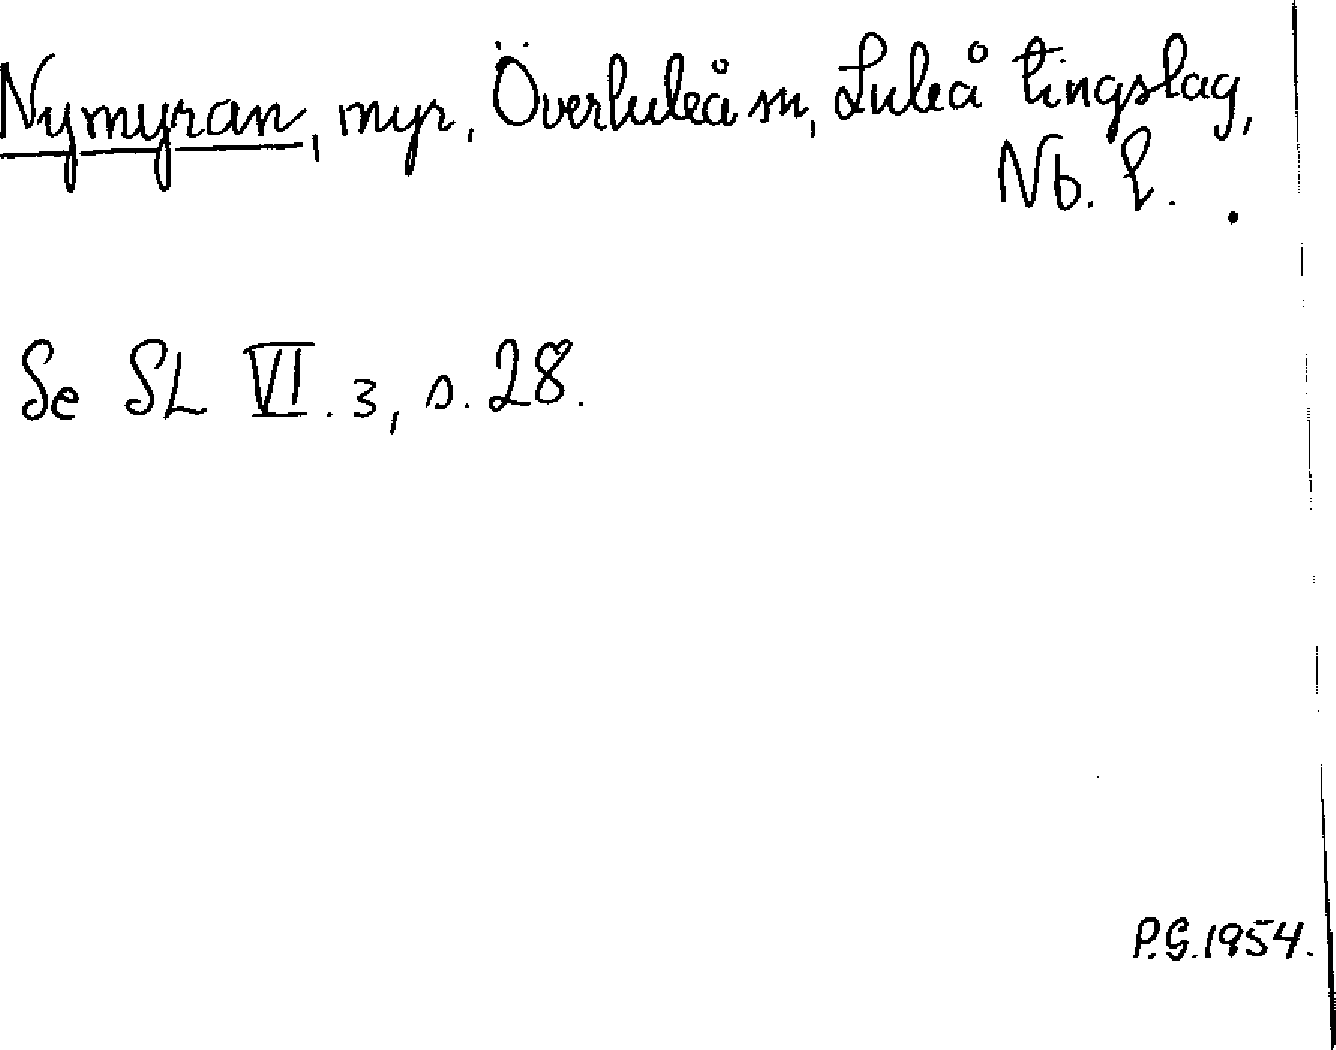 Nymyran, myr, Överluleå sn, Luleå tingslag,
Nb. l.
Se SL VI.3, s. 28.
P.G.1954.